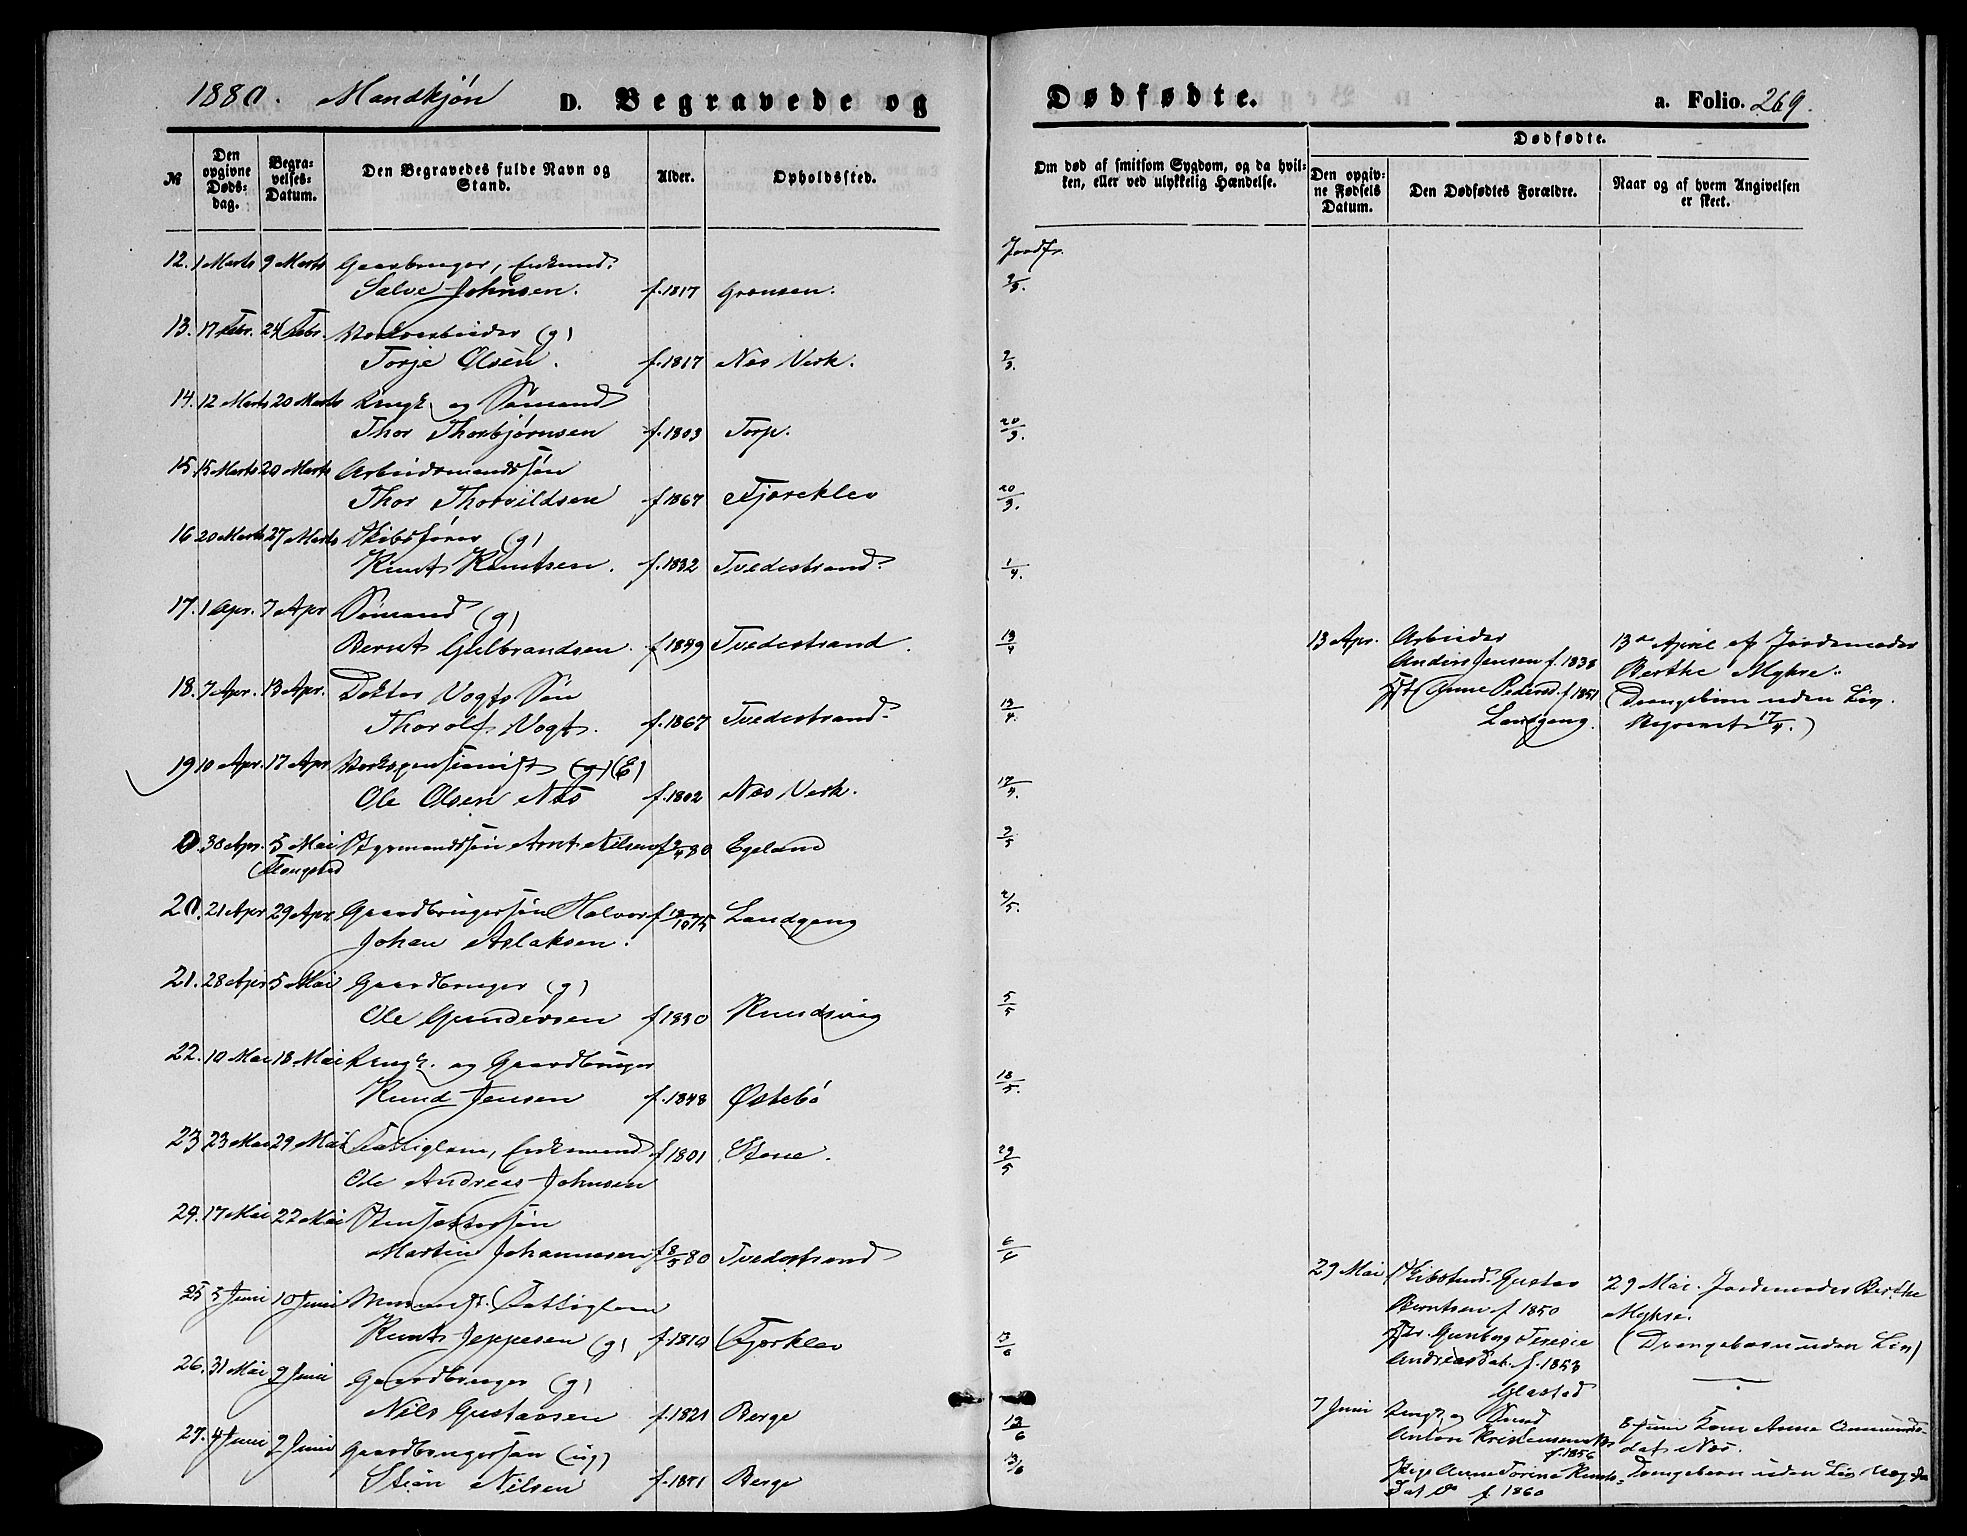 1880. Mandkjøn D. Begravede og Dødfødte. a. Folio. 269.
№
Den opgivne Døds-dag.
Begra-velses-Datum.
Den Begravedes fulde Navn og Stand.
Alder.
Opholdssted.
Om død af smitsom Sygdom, og da hvil-ken, eller ved ulykkelig Hændelse.
Dødfødte.
Den opgiv-ne Fødsels Datum.
Den Dødfødtes Forældre.
Naar og af hvem Angivelsen er skeet.
12. 1 Marts 9 Marts Gaarbruger, Enkemd. Jordf.
Salve Johnsen. f. 1817 Grønsen.
13. 17 Febr. 24 Febr. Verksarbeider (g)
Torje Olsen. f. 1817 Næs Verk.
14. 12 Marts 20 Marts Ungk og Sømand
Thor Thorbjørnsen f. 1803 Torp. 20/3.
15. 15 Marts 20 Marts Arbeidsmandssøn
Thor Thorvildsen f 1867 Fjæreklev 20/3.
16 20 Marts 27 Marts Skibsfører (g)
Knut Knutsen. f. 1832 Tvedestrand. 1/4.
17. 1 Apr. 7 Apr Sømand (g)
Bernt Gulbrandsen. f 1849 Tvedestrand. 13/4 13 Apr. Arbeider 13de April af Jordemoder
Anders Jensen f. 1838 Berthe Myhre.
18. 7 Apr. 13 Apr. Doktor Vogts Søn Anne Pedersd. f 1851 (Drengebarn uden Liv.
Thorolf Vogt. f. 1867 Tvedestrand. 13/4. Landgang. Begravet 17/4.)
19 10 Apr. 17 Apr Verkspensionist (g) (E)
Ole Olsen Næs f. 1802 Næs Verk. 17/4.
0. 30 Apr. 5 Mai Styrmandssøn Arnt Nilsen f 2/4 80 Egeland
20. 21 Apr 29 Apr. Gaardbrugersøn Halvor f 75 Landgang
Johan Aslaksen.
21. 28 Apr 5 Mai Gaardbruger (g)
Ole Gundersen f 1830 Knudsvig 5/5
22. 10 Mai 18 Mai Ungk. og Gaardbruger
Knud Jensen f. 1848 Østebø 18/5.
23 23 Mai 29 Mai Fattiglem, Enkemand f 1801 29/5
Ole Andreas Johnsen
24. 17 Mai 22 Mai
Martin Johannesen f 8/3 80 Tvedestrand 6/4
29 Mai Skibstmd. Gustav 29 Mai. Jordemoder Berthe
25 5 Juni 10 Juni Fattiglem Berntsen f 1850 Myhre.
Knut Jeppesen (g) f. 1810 Fjærklev 13/6 Gunborg Teresie (Drengebarn uden Liv)
26. 31 Mai 9 Juni Gaardbruger (g) Andreasdat. f. 1853
Glastad
Nils Gustavsen f. 1821 Berge 13/6 7 Juni Ungk. og
27. 4 Juni 9 Juni Gaardbrugersøn (ug) Anton Kristensen 8 Juni Kom Anne Aanunds-
f. 1856 dat. Næs.
Stian Nilsen f. 1871 Berge 13/6 Pige Anne Torine Knuts- Drengebarn uden Liv
dat f 1860